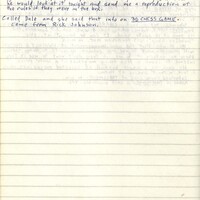 He would look at it tonight and send me a reproduction of
the rules if they were in the box.
Called Dale and she said that info on 3D CHESS GAME
came from Rick Johnson.